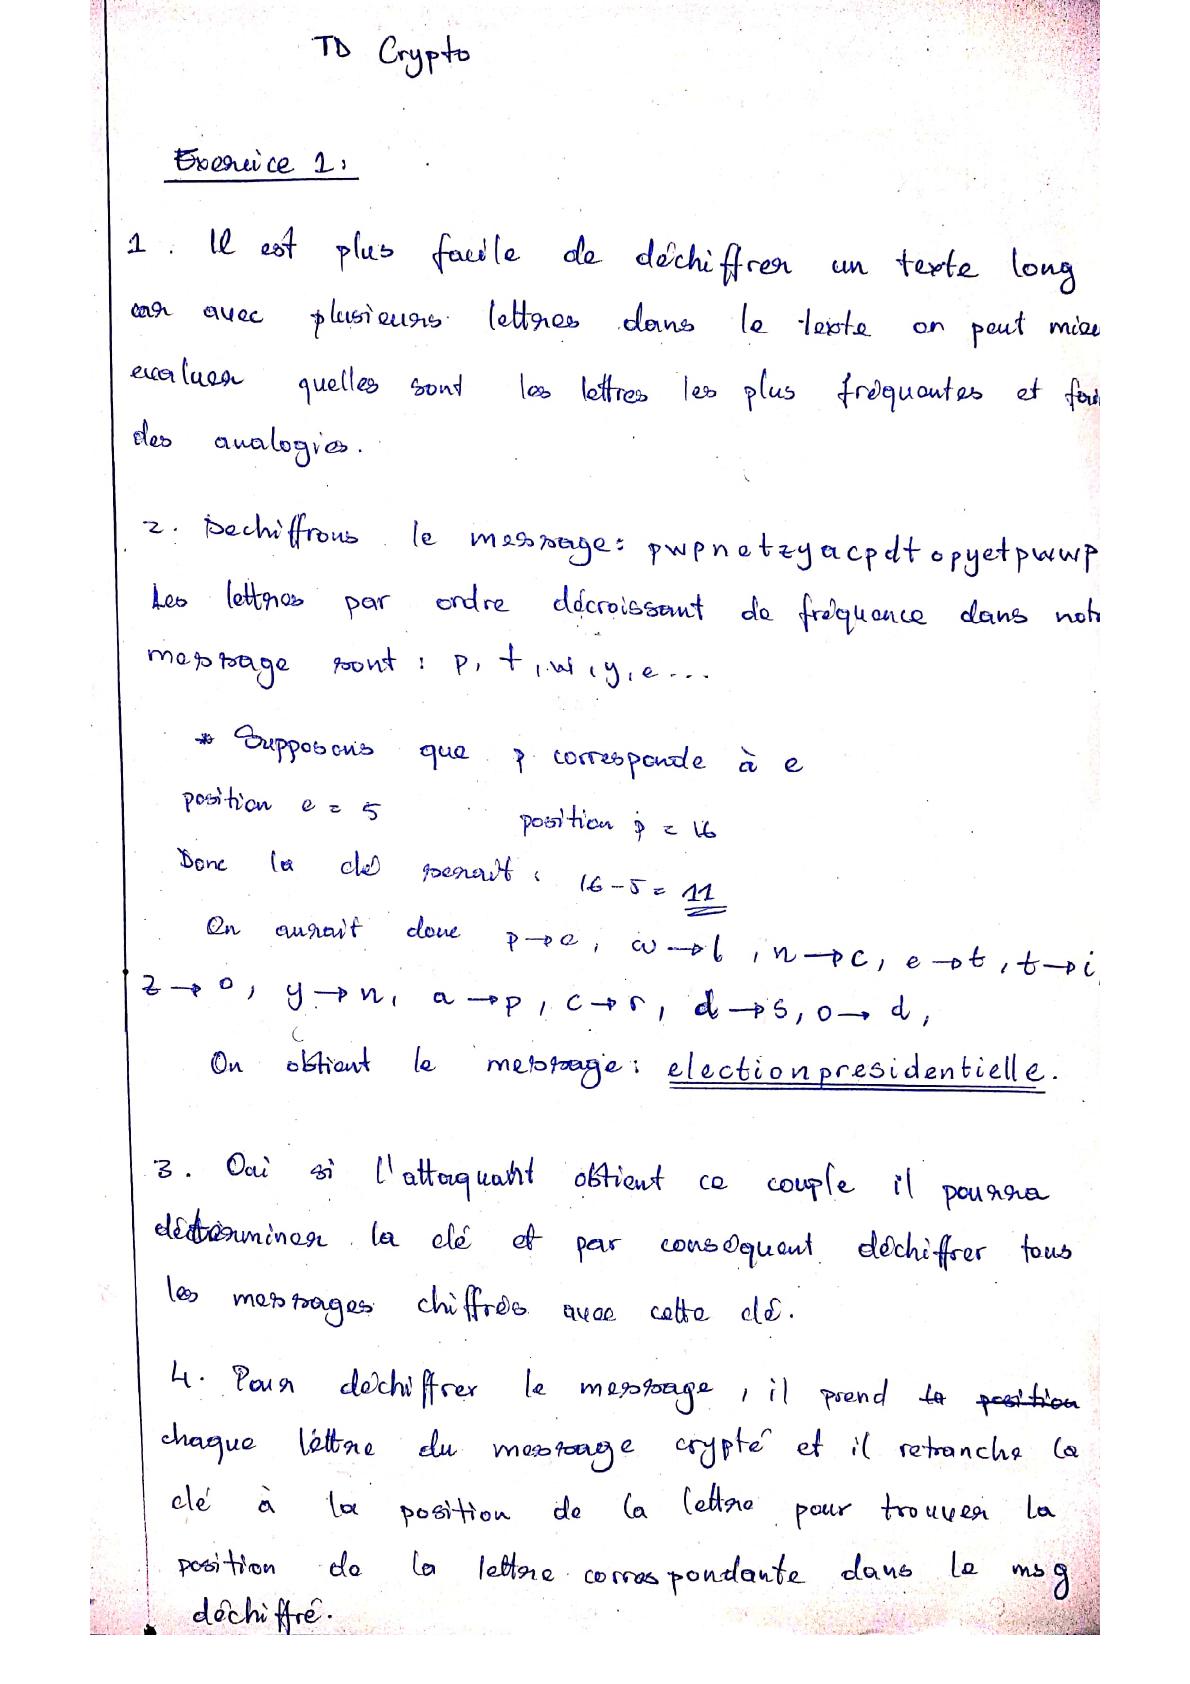 TD Crypto
Exercice 1:
1. Il est plus facile de déchiffrer un texte long
car avec plusieurs lettres dans le texte on peut
evaluer quelles sont les lettres les plus fréquantes et
des analogies.
2. Dechiffrons le message: pwpnetzyacpdtopyetpwwp
Les lettres par ordre décroissant de fréquence dans
message sont : p, t, w, y, e...
* Supposons que p corresponde à e
position e = 5 position p = 16
Donc la clé serait : 16-5 = 11
On aurait donc p→e, w→l, n→c, e→t, t→i,
z→o, y→n, a→p, c→r, d→s, o→d,
On obtient le message: electionpresidentielle.
3. Oui si l'attaquant obtient ce couple il pourra
déterminer la clé et par conséquent déchiffrer tous
les messages chiffrés avec cette clé.
4. Pour déchiffrer le message, il prend la position
chaque lettre du message crypté et il retranche la
clé à la position de la lettre pour trouver la
position de la lettre correspondante dans le msg
déchiffré.